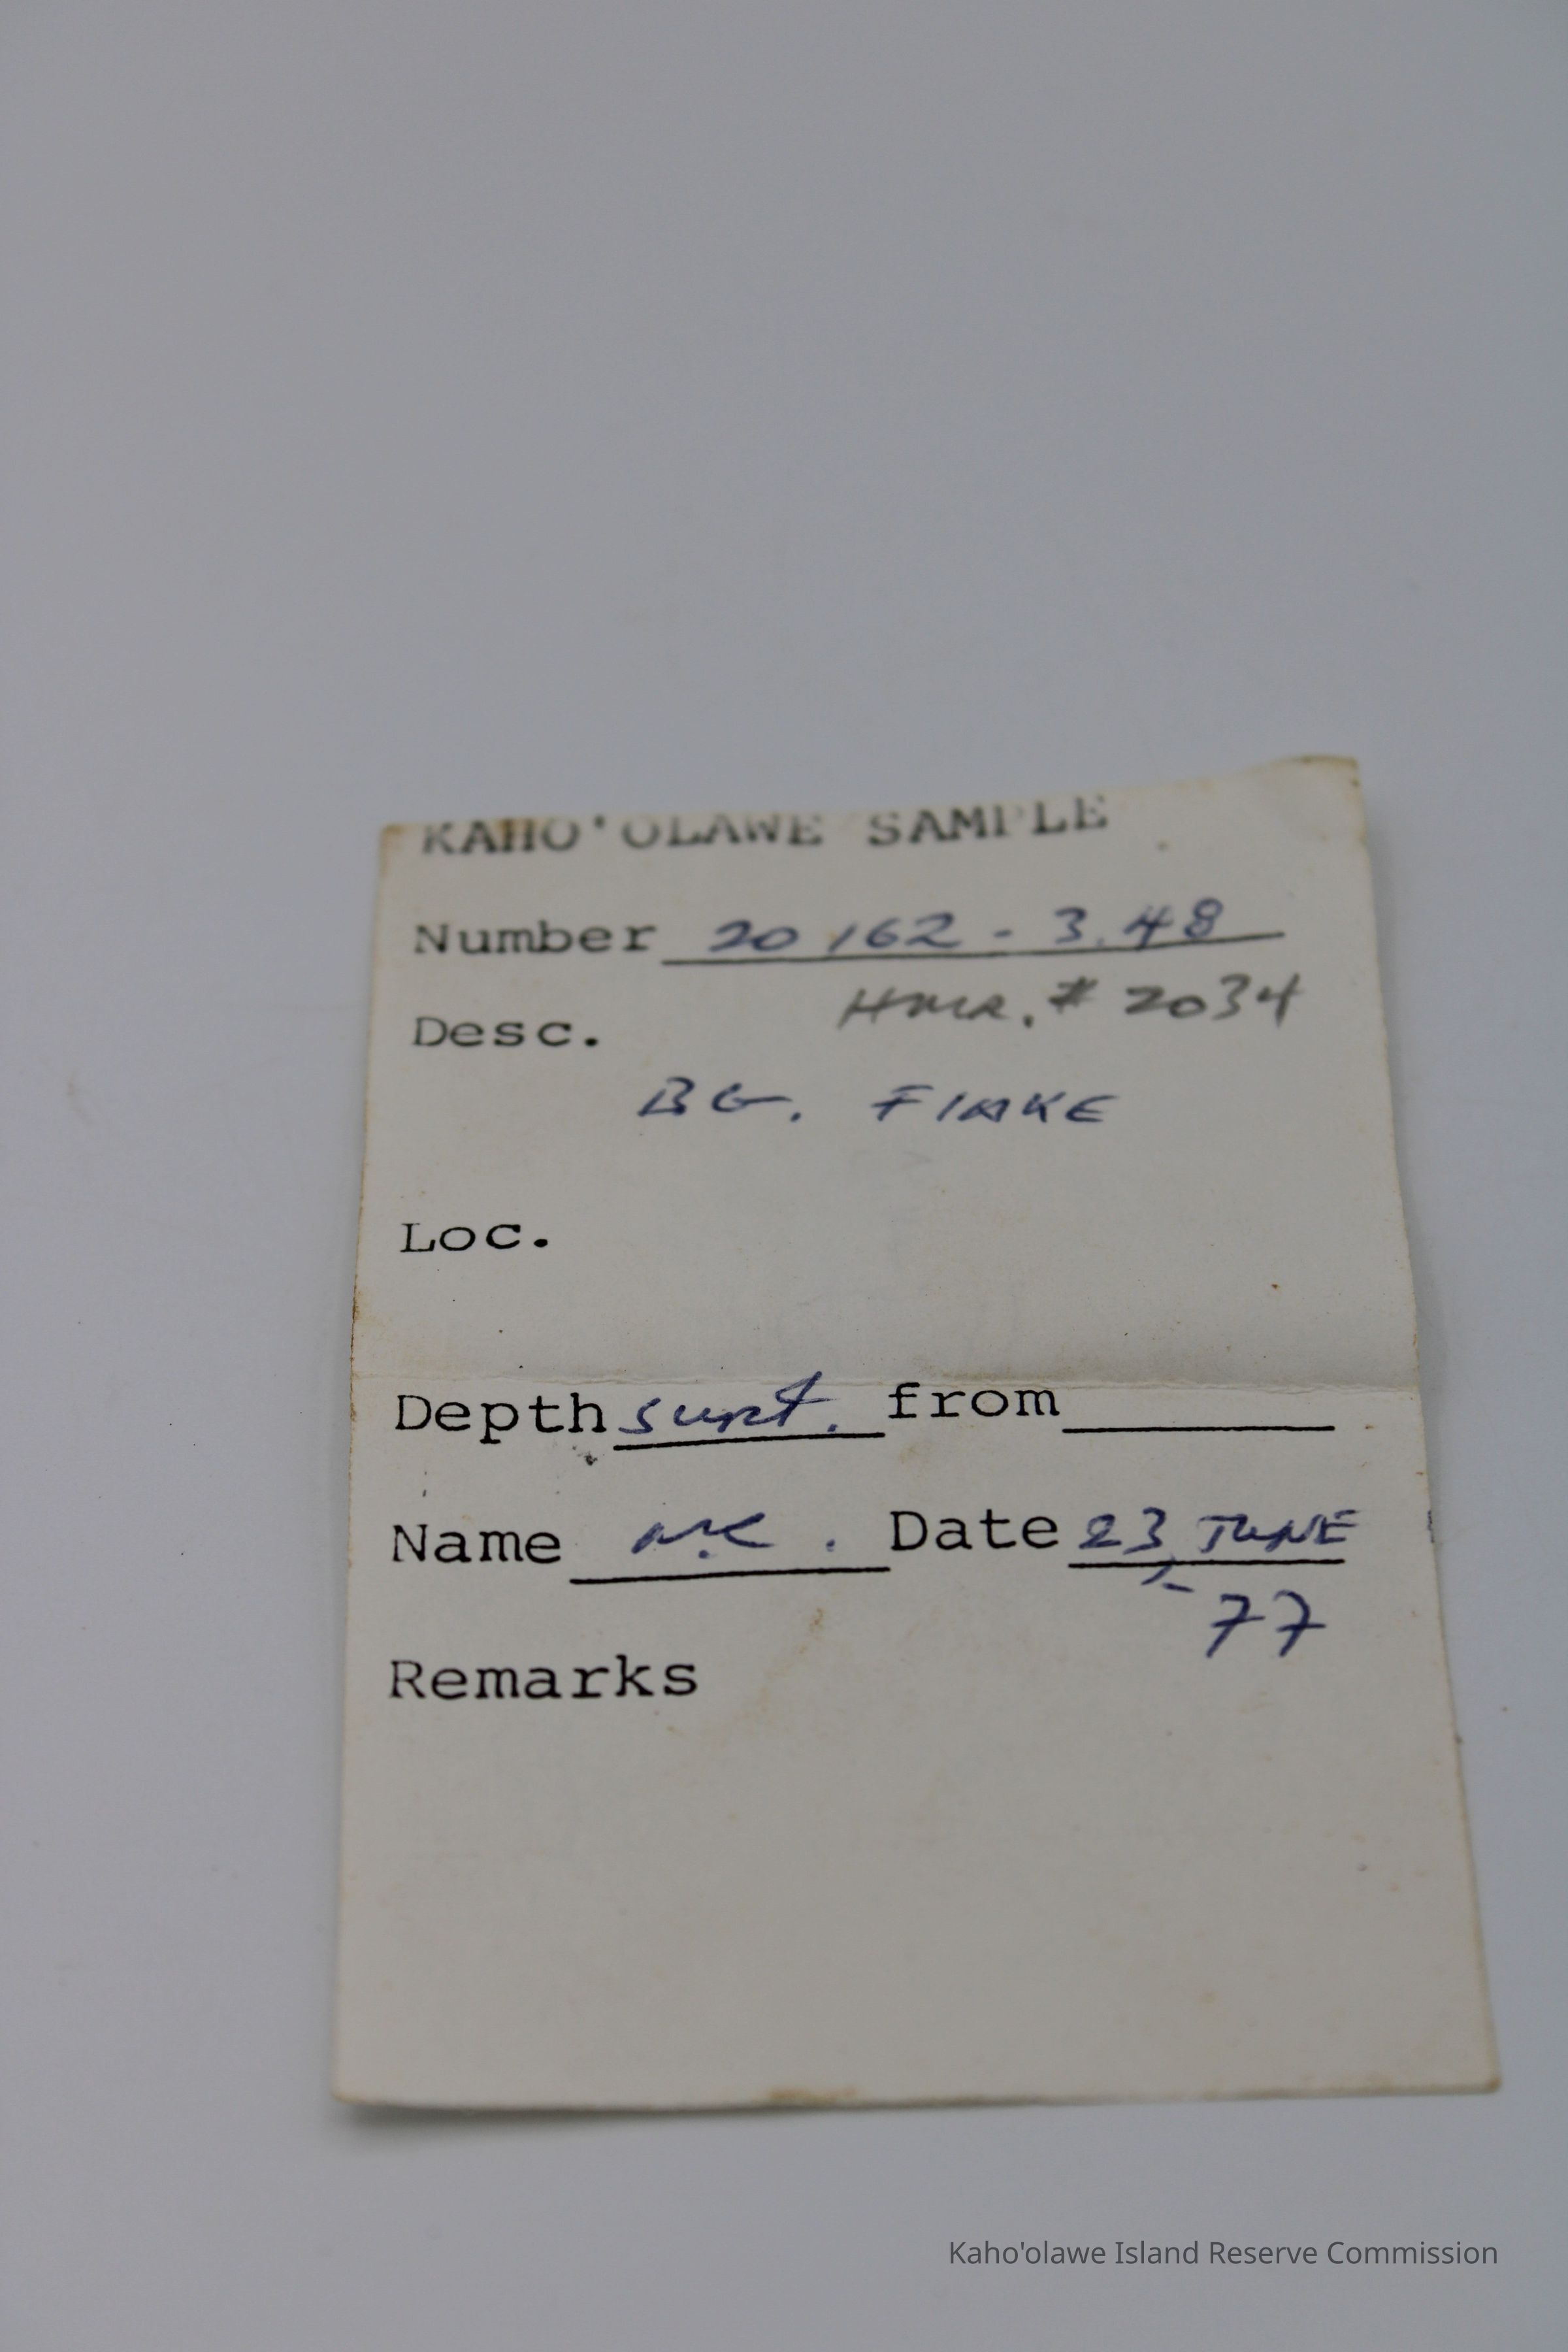 KAHO'OLAWE SAMPLE
Number 20162-3.48
HMR. # 2034
Desc.
BG. FLAKE
Loc.
Depth surf. from
Name Date 23 JUNE
77
Remarks
Kaho'olawe Island Reserve Commission